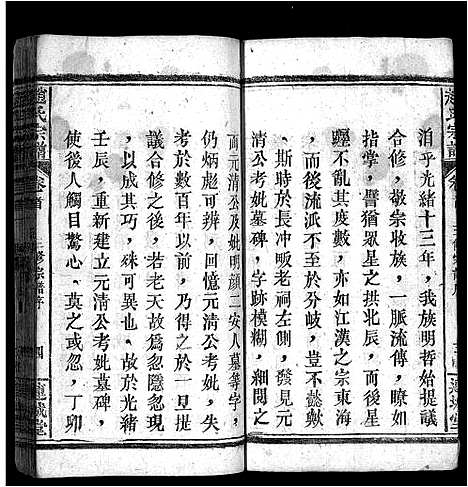 趙氏宗譜
洎乎光緒十三年，我族明哲始提議
合修，敬宗收族，一脈流傳，瞭然於
掌，譬猶眾星之拱北辰，而後星
躔不亂其度數，亦如江漢之宗東海
，而後流派不至於分歧，豈不懿歟
、斯時於殿老祠左側，發見元
清公考妣墓碑，字跡模糊，細閱之
趙氏宗譜
卷首
三修宗譜序
四
通城堂
而元清公及妣明顏二安人墓等字，
仍炳彪可辨，回憶元清公考妣，失
祀於元明之際，不下百年，一旦提
議合修之後，若老天故爲隱忽現
，以成其巧，殊可異也，故於光緒
壬辰，重新建立元清公考妣墓碑，
使後人觸目驚心、莫之或忽，丁卯